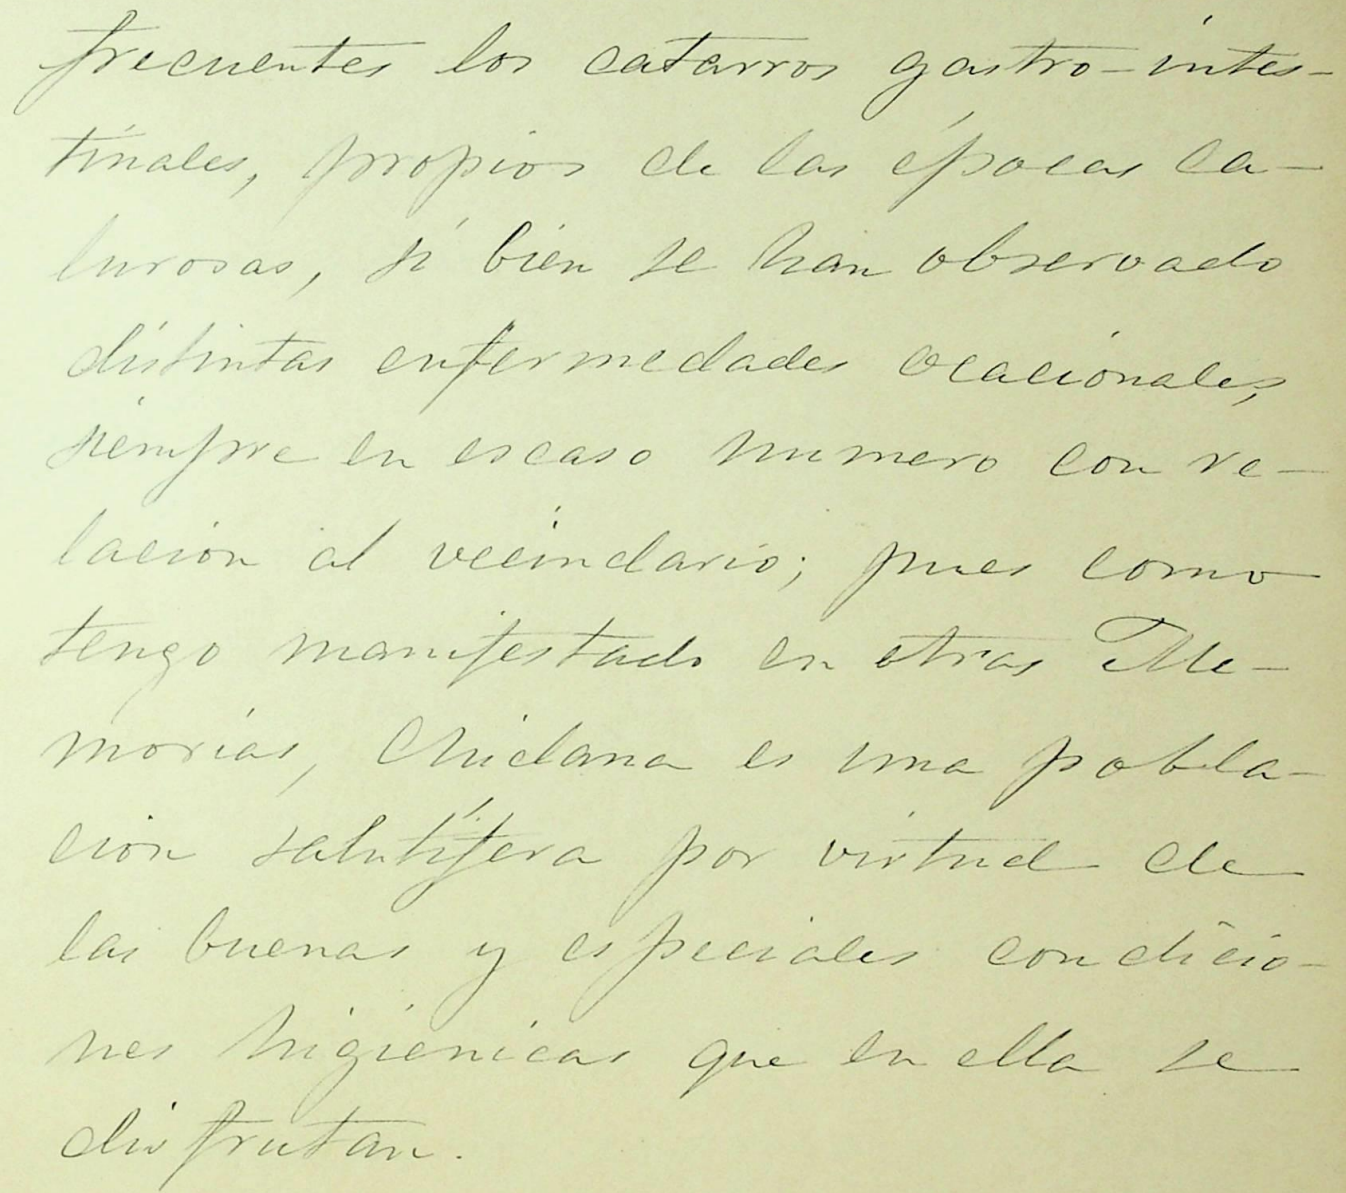 frecuentes los catarros gastro-intes-
tinales, propios de las épocas ca-
lurosas, si bien se han observado
distintas enfermedades ocacionales,
siempre en escaso numero con re-
lación al vecindario; pues como
tengo manifestado en otras Me-
morias, Chiclana es una pobla-
ción salutífera por virtud de
las buenas y especiales condicio-
nes higienicas que en ella se
disfrutan.